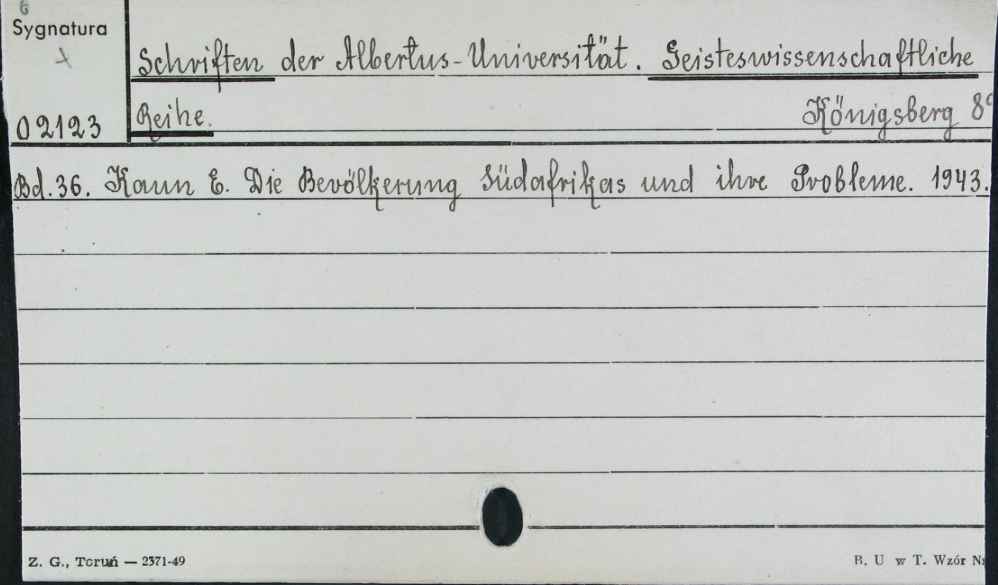 6
Sygnatura
Schriften der Albertus-Universität. Geisteswissenschaftliche
02123 Reihe. Königsberg 8°
Bd. 36. Kaun E. Die Bevölkerung Südafrikas und ihre Probleme. 1943.
Z. G., Toruń — 2371-49 B. U w T. Wzór Nr